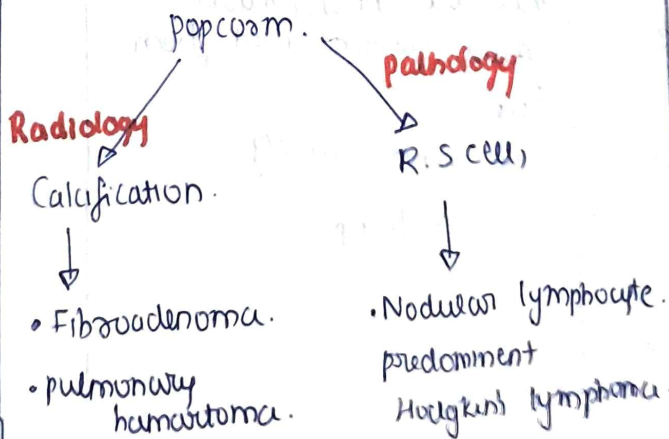 popcorn.
Radiology
pathology
Calcification.
R.S cell,
• Fibroadenoma.
• pulmonary
hamartoma.
• Nodular lymphocyte.
predominent
Hodgkins lymphoma